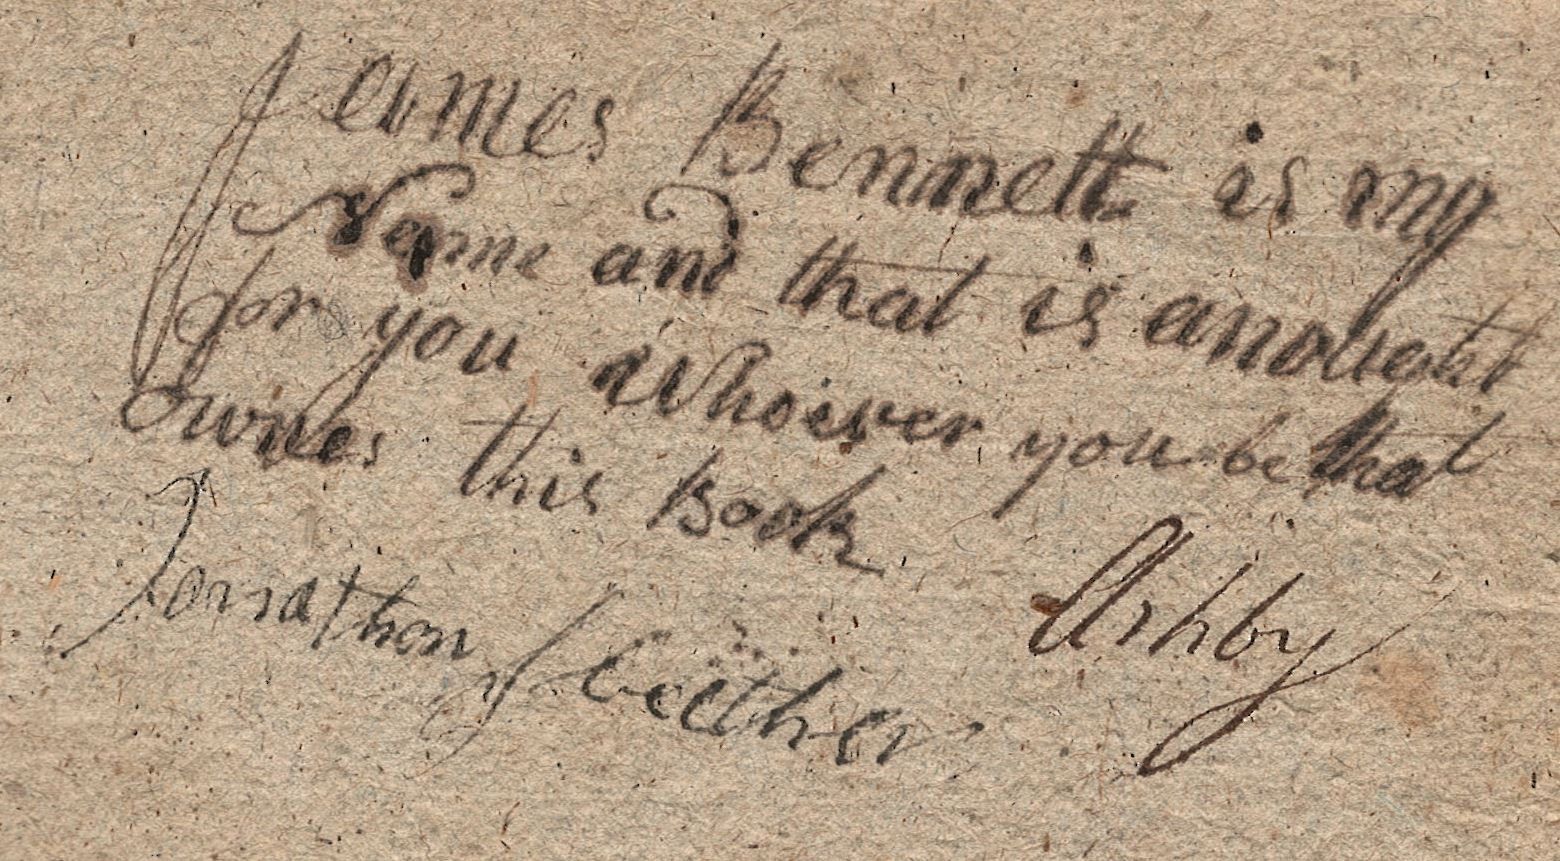 James Bennett is my
Name and that is anought
for you Whoiever you be that
ownes this Book
Ashby
Jonathon